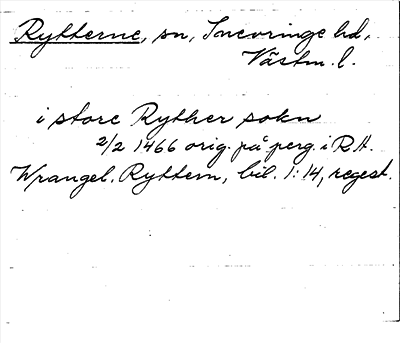 Rytterne, sn, Snevringe hd,
Västm. l.
i store Ryther sokn
2/2 1466 orig. på perg. i R.A.
Wrangel. Ryttern, bil. 1:14, regest.